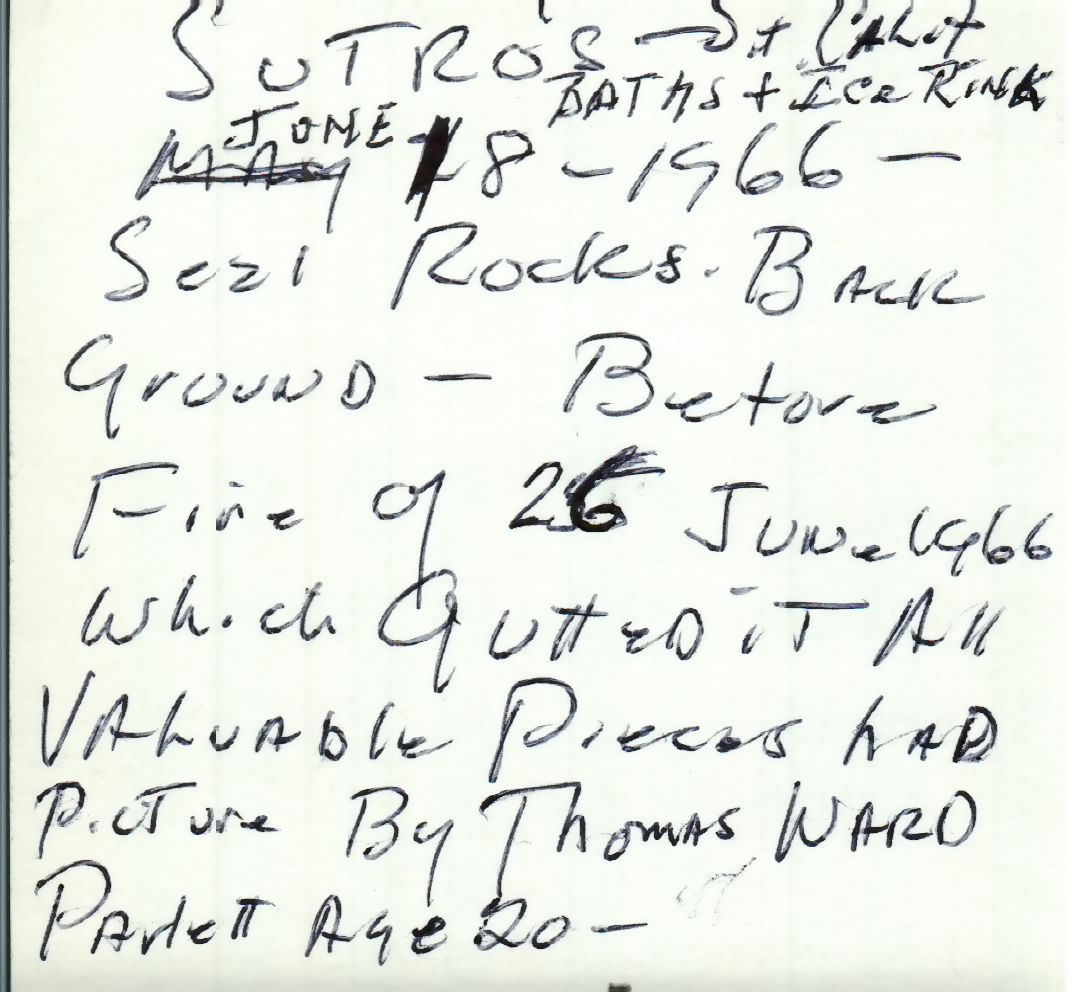 SUTROS
BATHS + ICe RiNK
JUNE
May 18 - 1966 -
Seal Rocks. BACK
GrOUND - Before
Fire of 26 JUNe 1966
Which GuttED iT All
VALUADle Pieces hAD
PicTure By ThomAS WARD
PArlett Age 20 -